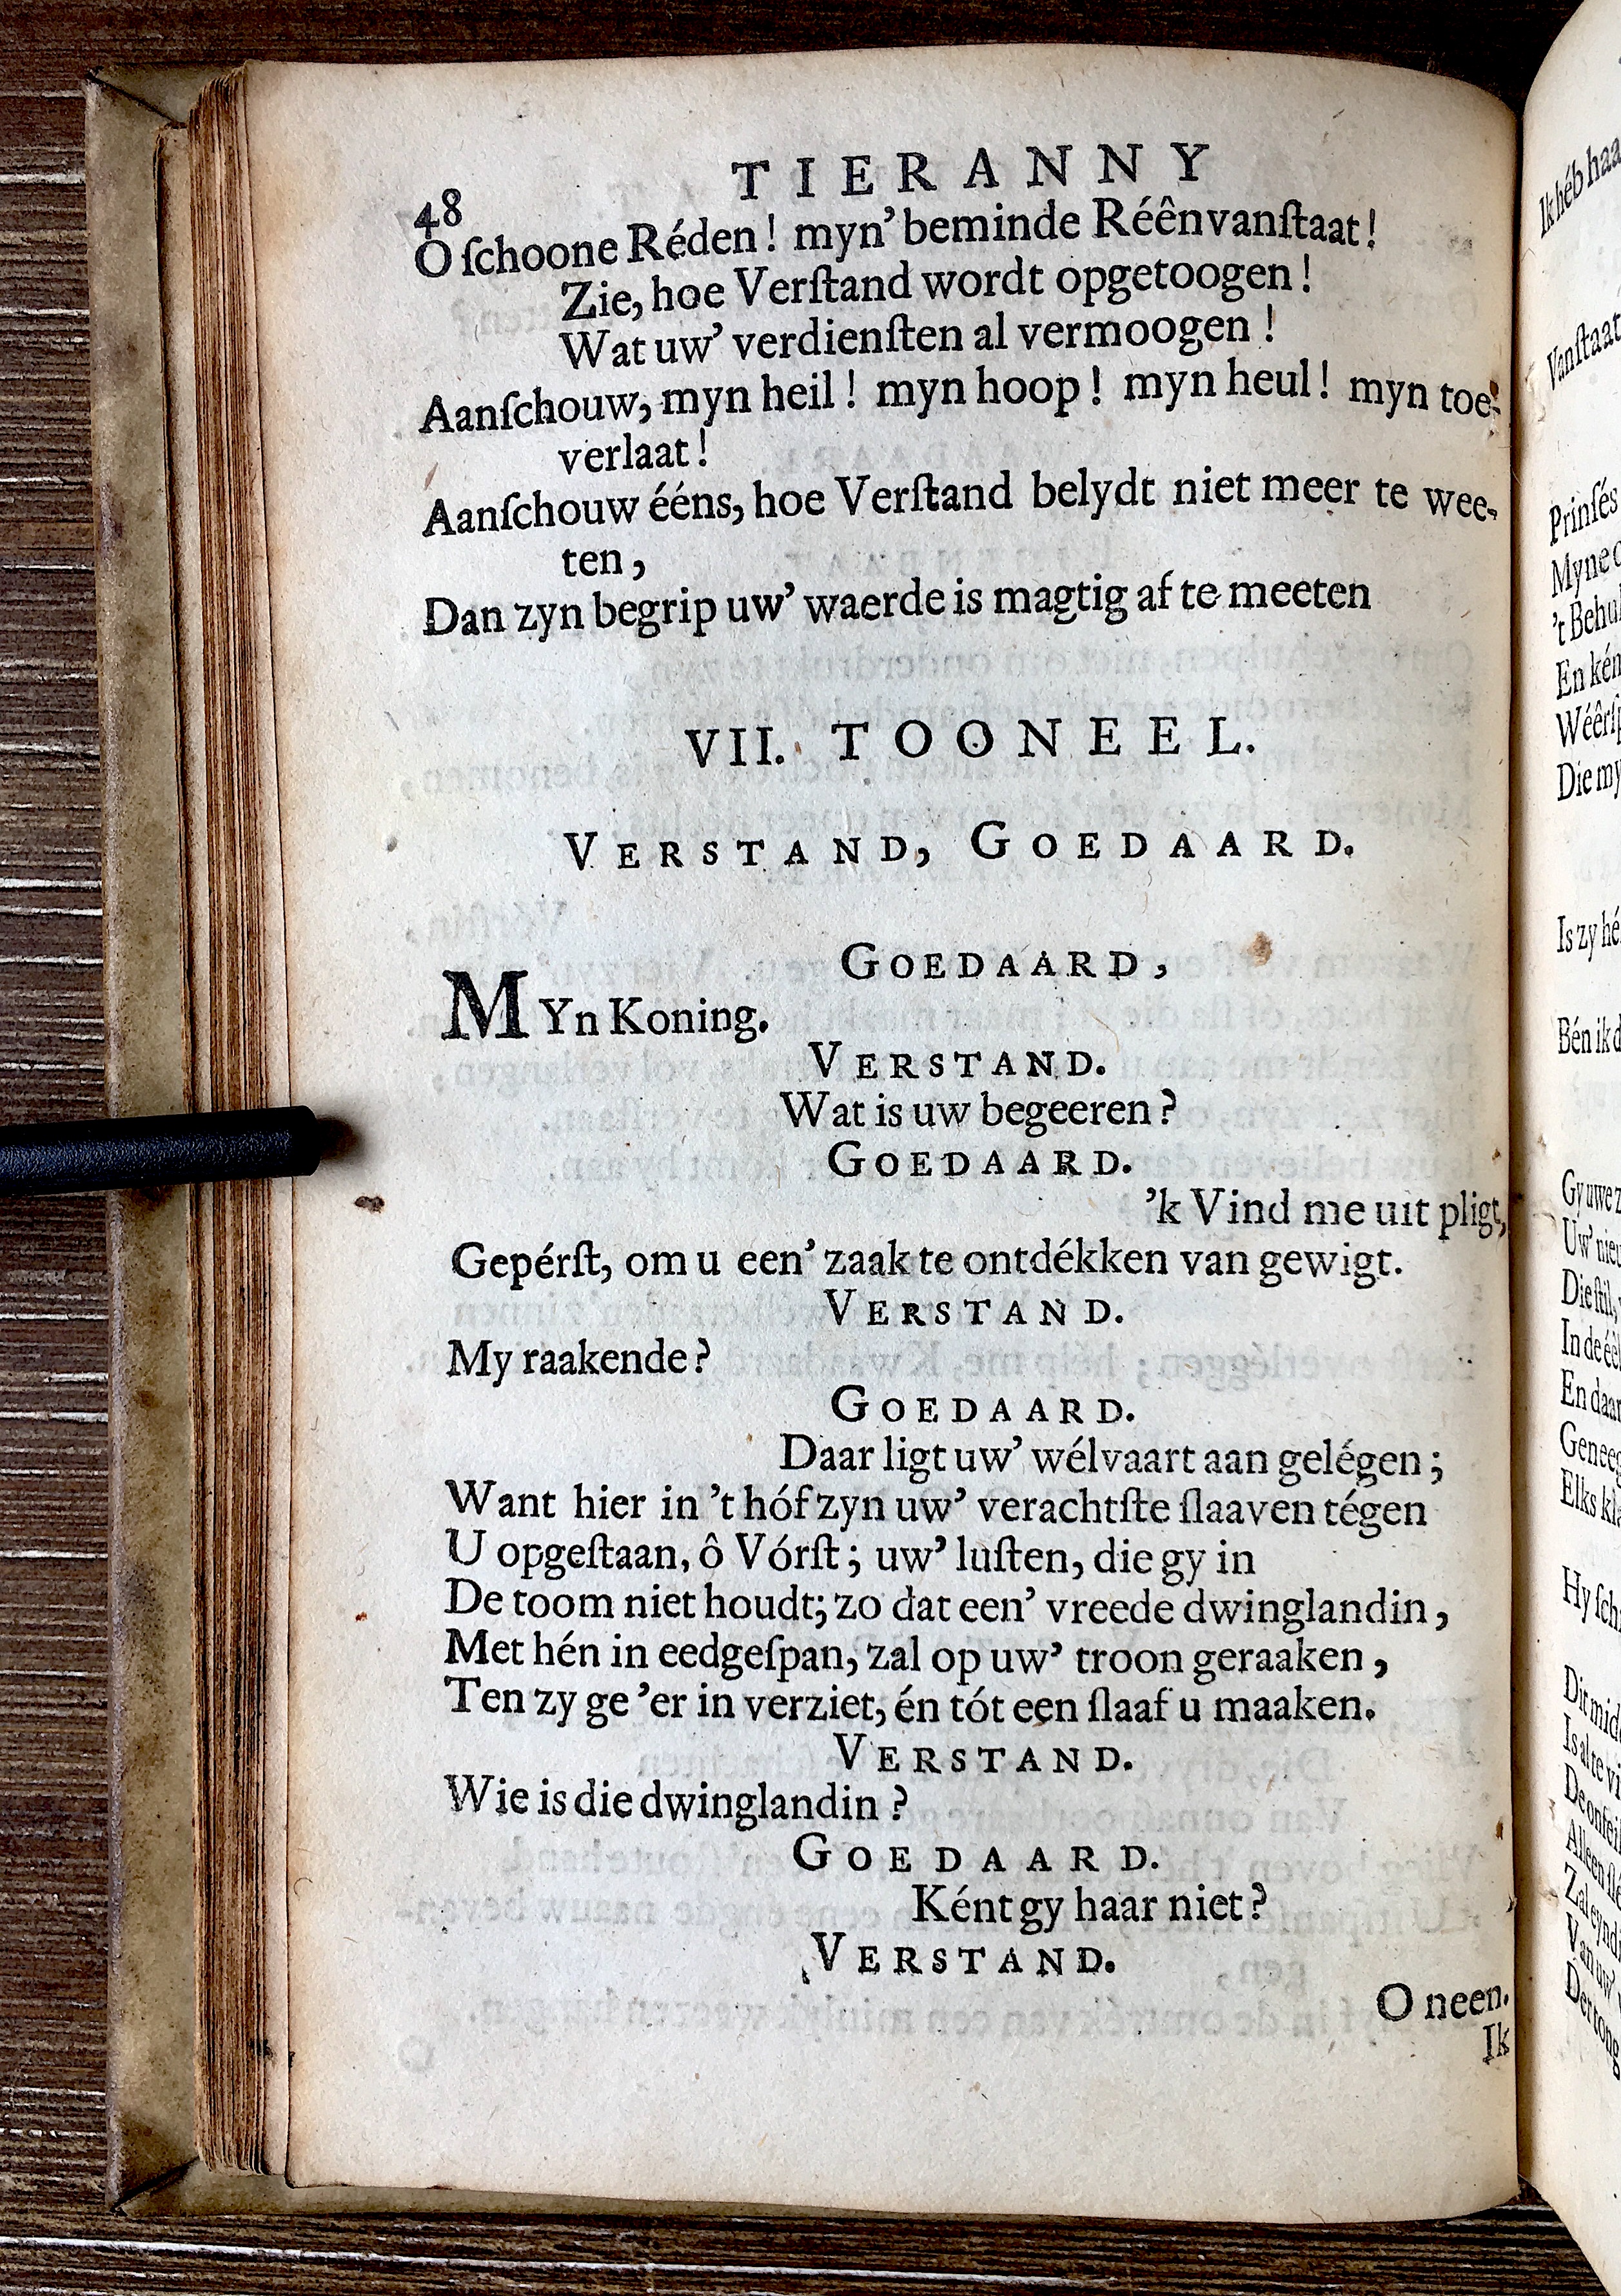 48
TIERANNY
O ſchoone Réden! myn’ beminde Réênvanſtaat!
Zie, hoe Verſtand wordt opgetoogen!
Wat uw’ verdienſten al vermoogen!
Aanſchouw, myn heil! myn hoop! myn heul! myn toe-
verlaat!
Aanſchouw ééns, hoe Verſtand belydt niet meer te wee-
ten,
Dan zyn begrip uw’ waerde is magtig af te meeten
VII. TOONEEL.
VERSTAND, GOEDAARD.
GOEDAARD,
MYn Koning.
VERSTAND.
Wat is uw begeeren?
GOEDAARD.
’k Vind me uit pligt,
Gepérſt, om u een’ zaak te ontdékken van gewigt.
VERSTAND.
My raakende?
GOEDAARD.
Daar ligt uw’ wélvaart aan gelégen;
Want hier in ’t hóf zyn uw’ verachtſte ſlaaven tégen
U opgeſtaan, ô Vórſt; uw’ luſten, die gy in
De toom niet houdt; zo dat een’ vreede dwinglandin,
Met hén in eedgeſpan, zal op uw’ troon geraaken,
Ten zy ge ’er in verziet, én tót een ſlaaf u maaken.
VERSTAND.
Wie is die dwinglandin?
GOEDAARD.
Ként gy haar niet?
VERSTAND.
O neen.
Ik
Ik héb haa
Vanſtaat
Prinſés
Myne
’t Behu
En kén
Wéêrſp
Die my
Is zy hé
Bén ik d
Gy uwe z
Uw’ nieu
Die ſtil,
In de éêl
En daar
Geneeg
Elks kla
Hy ſch
Dit mid
Is al te vi
De onfeil
Alleen ſlé
Zal eyndi
Van uw’
Der tong